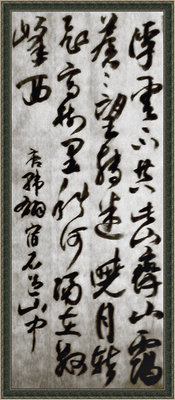 浮雲不共此山齊山靄
蒼〻望轉迷曉月暫
飛高樹里秋河隔在數
峰西
唐韓翃宿石邑山中